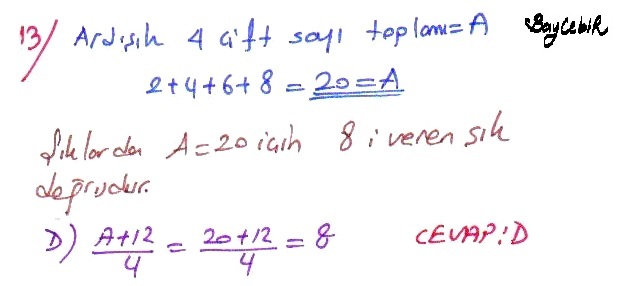 13/ Ardışık 4 çift sayı toplamı=A BayCebir
2+4+6+8 = 20=A
Şıklarda A=20 için 8 i veren şık
doğrudur.
D) A+12/4 = 20+12/4 = 8 CEVAP:D